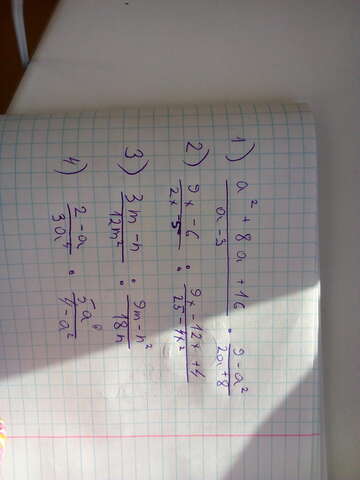 1) (a² + 8a + 16)/(a - 3) · (9 - a²)/(2a + 8)
2) (9x - 6)/(2x - 5) : (9x - 12x + 4)/(25 - 4x²)
3) (3m - n)/(12m²) : (9m - n²)/(18n)
4) (2 - a)/(3a⁴) : (4 - a²)